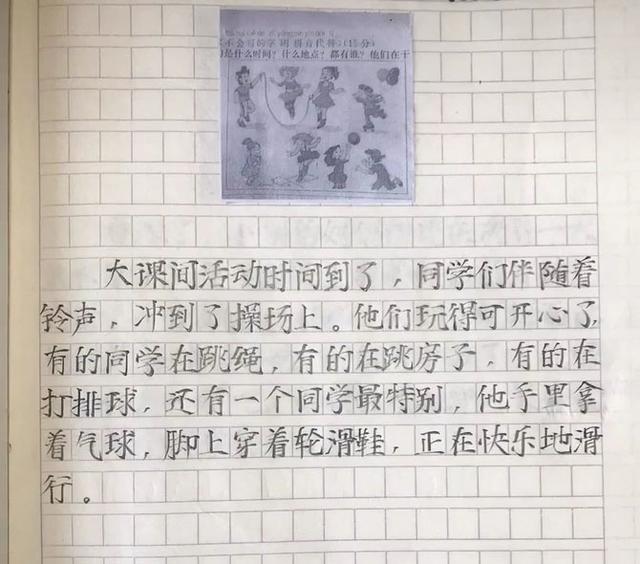 不会写的字用拼音代替。(15分)
是什么时间？什么地点？都有谁？他们在干
大课间活动时间到了，同学们伴随着
铃声，冲到了操场上。他们玩得可开心了，
有的同学在跳绳，有的在跳房子，有的在
打排球，还有一个同学最特别，他手里拿
着气球，脚上穿着轮滑鞋，正在快乐地滑
行。